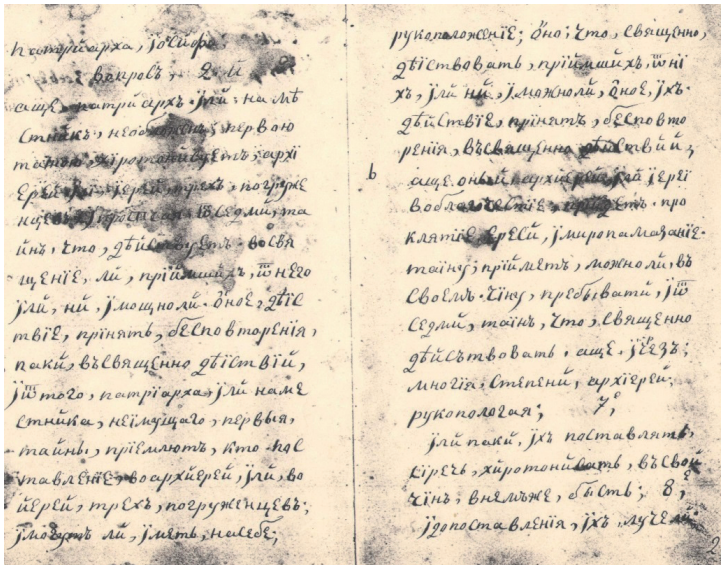 патрїарха, їосифа,
вопросъ, 2 й
аще, патрїархъ, їлй намѣ
стникъ, необложенъ, первою
тайною, хиротонисуетъ, архї
ерей їлй їерей, трехъ, погруже
нцевъ, ї прочїихъ седмй, та
инъ, что, дѣйствуетъ, восвя
щенїе, ли, прїимшихъ, ѿ него
їлй, нй, їмощноли оное, дѣйс
твїе, прїнять, бесповторенїя,
пакй, въсвященно дѣйствїй,
їѿтого, патрїарха, їлй наме
стника, неїмущаго, первыя,
тайны, прїемлютъ, кто пос
тавленїе, воархїерей, їлй, во
їерей, трехъ, погруженцевъ;
їмогутъ ли, їметь, насебе;
рукоположенїе; оно; что, священно,
дѣйствовать, прїимшихъ, ѿ нї
хъ, їлй нй, їможнолй, оное, їхъ
дѣйствїе, прїнять, бесповто
ренїя, въсвященно дѣйствїй;
аще оный архїерей їлй їерей
воблагочестїе, прїидетъ про
клятїе ереси, їмиропамазанїе
тайну; прїиметъ, можноли, въ
своемъ чїну, пребыватй, їѿ
седмй, таинъ, что, священно
дѣйствовать. аще, їбезъ;
многїя, степени, архїерей;
рукопологая; 7,
їлй пакй, їхъ поставлять,
сїречь, хиротонисать, въсвой
чїнъ, внемъже, бысть; 8,
їдопоставленїя, їхъ лучеми
2